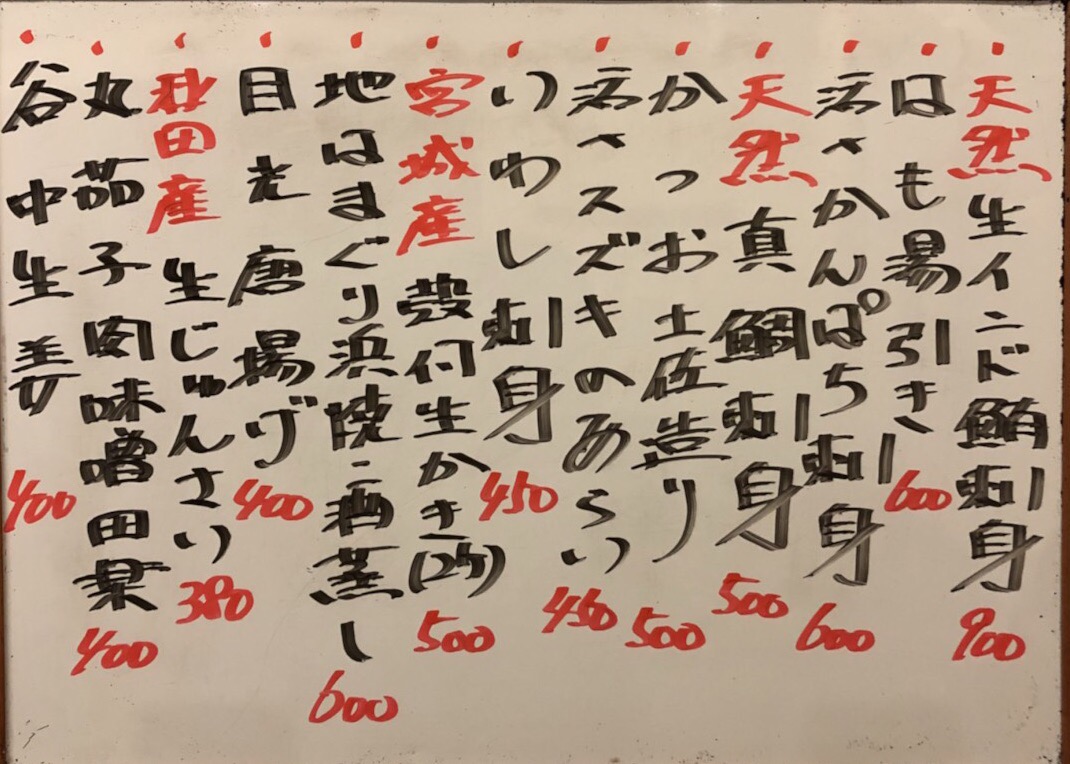 天然生インド鮪刺身 900
はも湯引き 600
活〆かんぱち刺身 600
天然真鯛刺身 500
かつお土佐造り 500
活〆スズキのあらい 450
いわし刺身 450
宮城産殻付生かき(2ケ) 500
地はまぐり浜焼こ酒蒸し 600
目光唐揚げ 400
秋田産生じゅんさい 380
丸茄子肉味噌田楽 400
谷中生姜 400